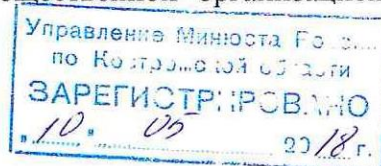 Управление Минюста
по Костромской области
ЗАРЕГИСТРИРОВАНО
"10" 05 2018 г.